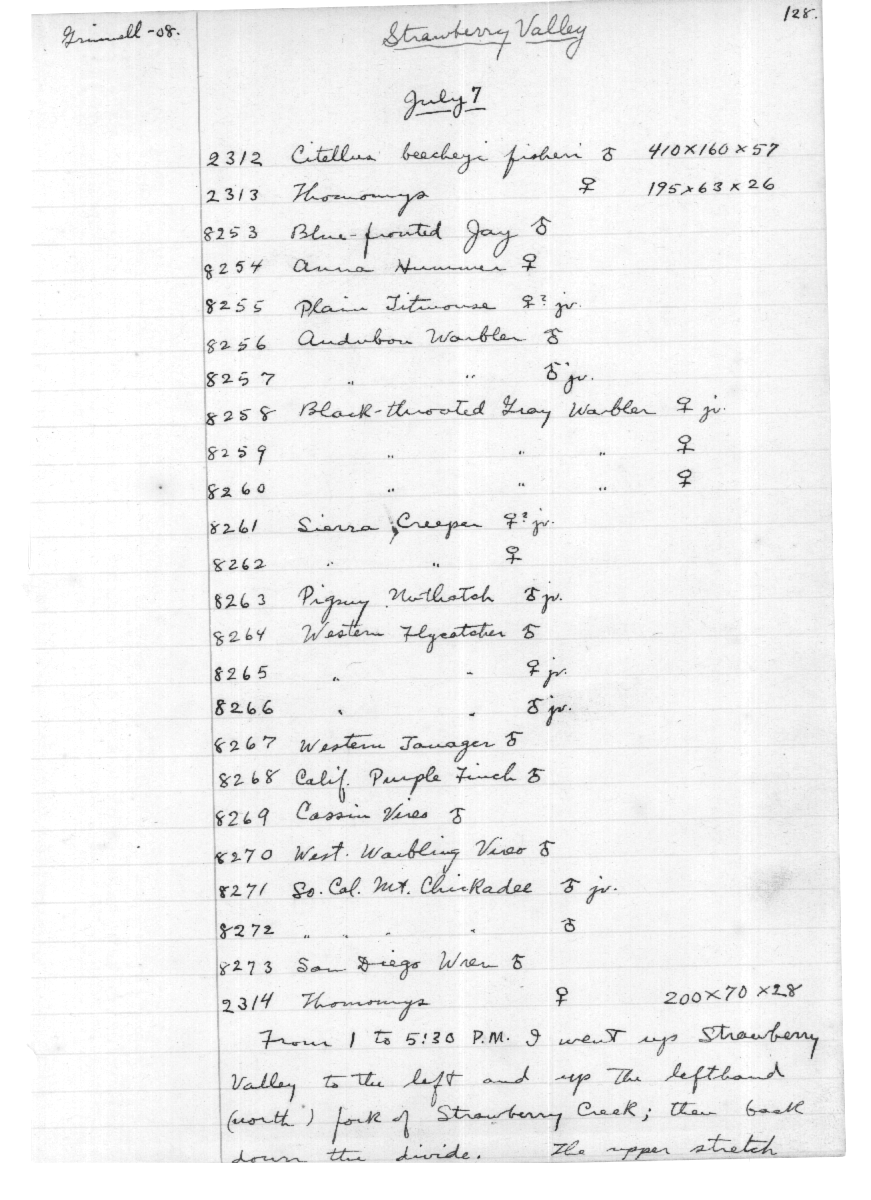 Grinnell-08.
Strawberry Valley
128.
July 7
2312 Citellus beecheyi fisheri ♂ 410x160x57
2313 Thomomys ♀ 195x63x26
8253 Blue-fronted Jay ♂
8254 Anna Hummer ♀
8255 Plain Titmouse ♀? jv.
8256 Audubon Warbler ♂
8257 " " ♂ jv.
8258 Black-throated Gray Warbler ♀ jv.
8259 " " " ♀
8260 " " " ♀
8261 Sierra Creeper ♀? jv.
8262 " " ♀
8263 Pigmy Nuthatch ♂ jv.
8264 Western Flycatcher ♂
8265 " " ♀ jv.
8266 " " ♂ jv.
8267 Western Tanager ♂
8268 Calif. Purple Finch ♂
8269 Cassin Vireo ♂
8270 West. Warbling Vireo ♂
8271 So. Cal. Mt. Chickadee ♂ jv.
8272 " " " " ♂
8273 San Diego Wren ♂
2314 Thomomys ♀ 200x70x28
From 1 to 5:30 P.M. I went up Strawberry
Valley to the left and up the lefthand
(north) fork of Strawberry Creek; then back
down the divide. The upper stretch